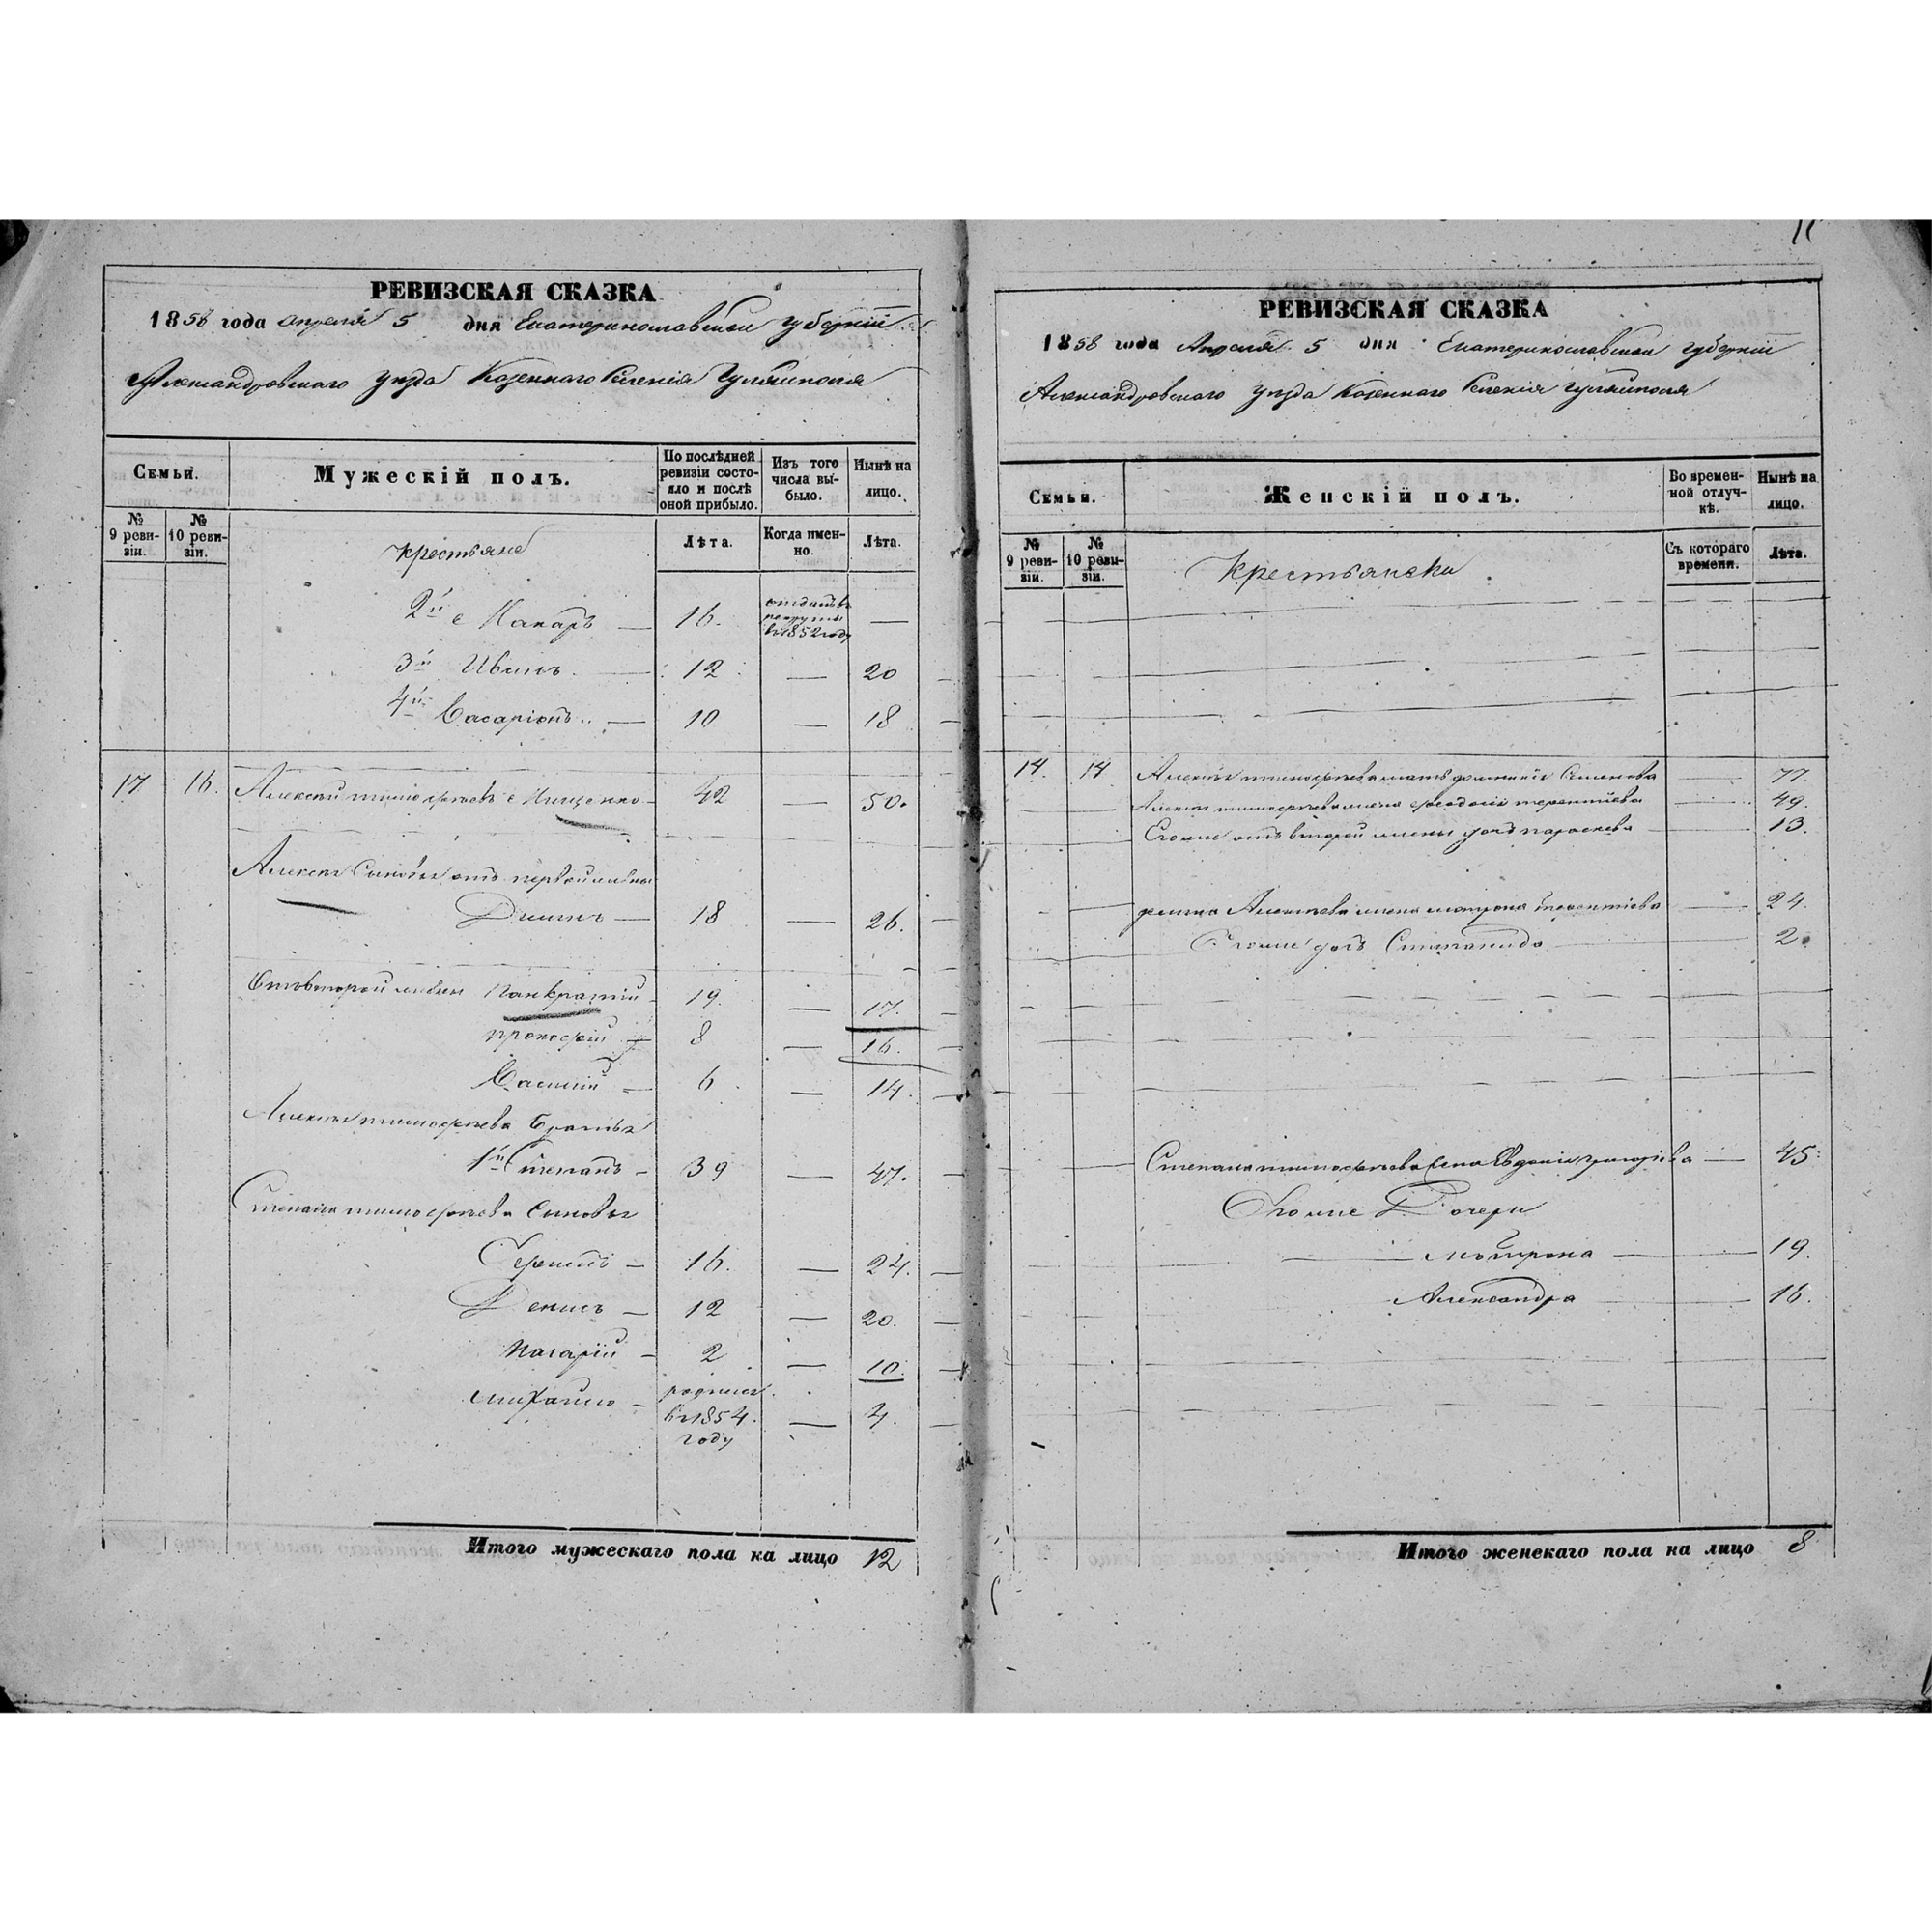 РЕВИЗСКАЯ СКАЗКА
1858 года апреля 5 дня Екатеринославской губерніи
Александровскаго уезда Казеннаго Селенія Гуляйполя
Семьи.
Мужескій полъ.
По послѣдней ревизіи состояло и послѣ оной прибыло.
Изъ того числа выбыло.
Нынѣ на лицо.
№ 9 ревизіи.
№ 10 ревизіи.
Крестьяне
Лѣта.
Когда именно.
Лѣта.
2й Макаръ — 16. отданъ в рекруты въ 1852 году —
3й Иванъ — 12 — 20
4й Васаріонъ — 10 — 18
17 16. Алексей тимофеевъ Мищенко — 42 — 50.
Алексея Сыновья отъ первой жены
18 — 26.
Отъ второй жены Панкратій 19. — 17.
прокофій 8 — 16.
Василій — 6 — 14.
Алексея тимофеева Братья
1й Степанъ — 39 — 47.
Степана тимофеева Сыновья
16. — 24.
Денисъ — 12 — 20.
Макарій — 2 — 10.
михайло — родился въ 1854. году — 4.
Итого мужескаго пола на лицо 12
11
РЕВИЗСКАЯ СКАЗКА
1858 года Апреля 5 дня Екатеринославской губерніи
Александровскаго уезда Казеннаго Селенія Гуляйполя
Семьи.
Женскій полъ.
Во временной отлучкѣ.
Нынѣ на лицо.
№ 9 ревизіи.
№ 10 ревизіи.
Крестьянски
Съ котораго времени.
Лѣта.
14. 14 Алексея тимофеева мать Семенова — 77.
Алексея тимофеева жена феодосія терентіева — 49.
Егоже отъ второй жены дочь параскева — 13.
Алексеева жена матрона терентіева — 24.
Егоже дочь Степанида — 2.
Степана тимофеева жена Евдокія григоріева — 45.
Егоже Дочери
матрона — 19.
Александра — 16.
Итого женскаго пола на лицо 8